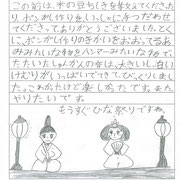 この前は、木の豆ちしきを教えてくださった
り、ポンがし作りをしっしょに手つだわせ
てくださってありがとうございました。とく
に、ポンがし作りのきかいをおおってるあ
みみたいな物をハンマーみたいな物で、
たたいたしゅんかんの音は、大きいし、白い
けむりがいっぱいでてきて、びっくりしまし
た。こわかったけど楽しかったです。また
やりたいです。
もうすぐひな祭りですね。